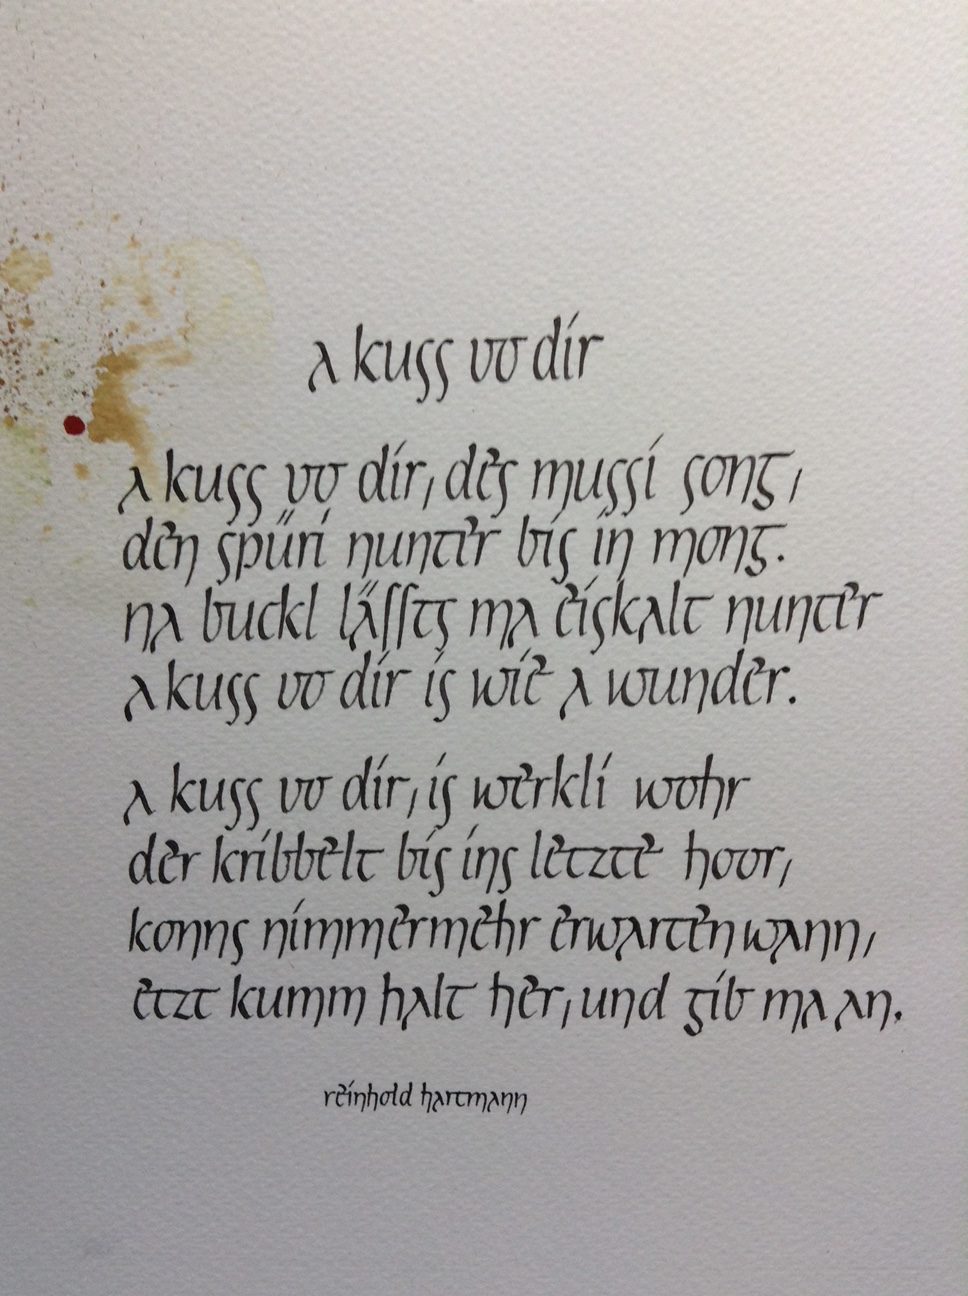 a kuss vo dir
a kuss vo dir, des mussi song,
den spüri nunter bis in mong.
na buckl lässts ma eiskalt nunter
a kuss vo dir is wie a wunder.
a kuss vo dir, is werkli wohr
der kribbelt bis ins letzte hoor,
konns nimmermehr erwarten wann,
etzt kumm halt her, und gib ma an.
reinhold hartmann